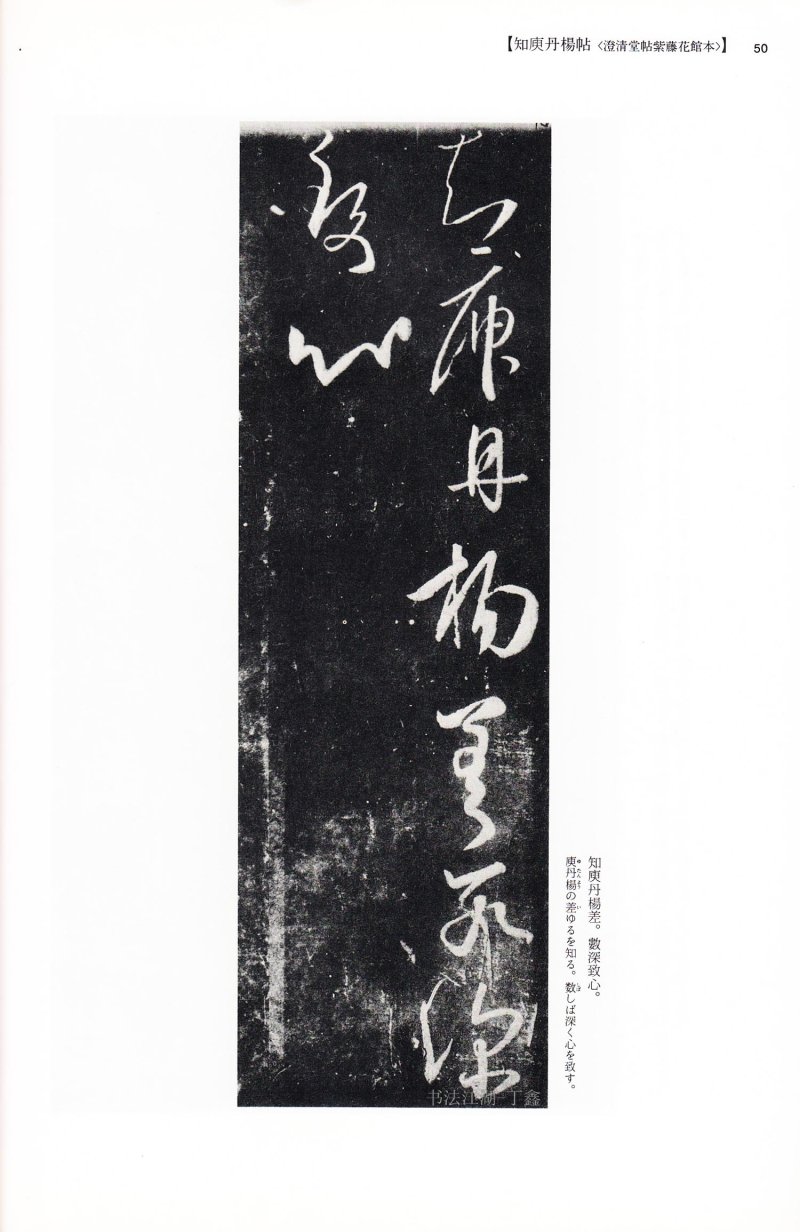 【知庾丹楊帖〈澄清堂帖紫藤花館本〉】 50
知庾丹楊差數深
致心
知庾丹楊差。數深致心。
庾丹楊の差ゆるを知る。数しば深く心を致す。
书法江湖 丁鑫